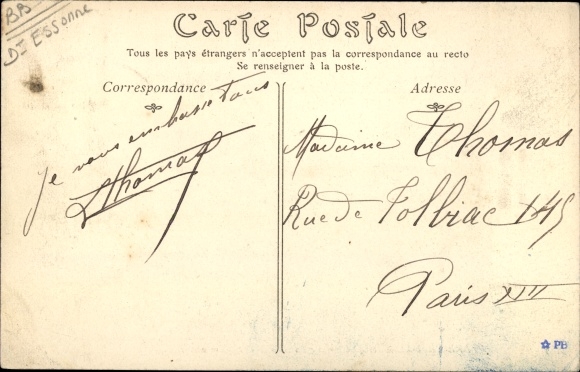 BB
Dt ESSonne
Carte Postale
Tous les pays étrangers n'acceptent pas la correspondance au recto
Se renseigner à la poste.
Correspondance
Je vous embrasse Tous
Thomas
Adresse
Madame Thomas
Rue de Tolbiac 145
Paris XIII
PB